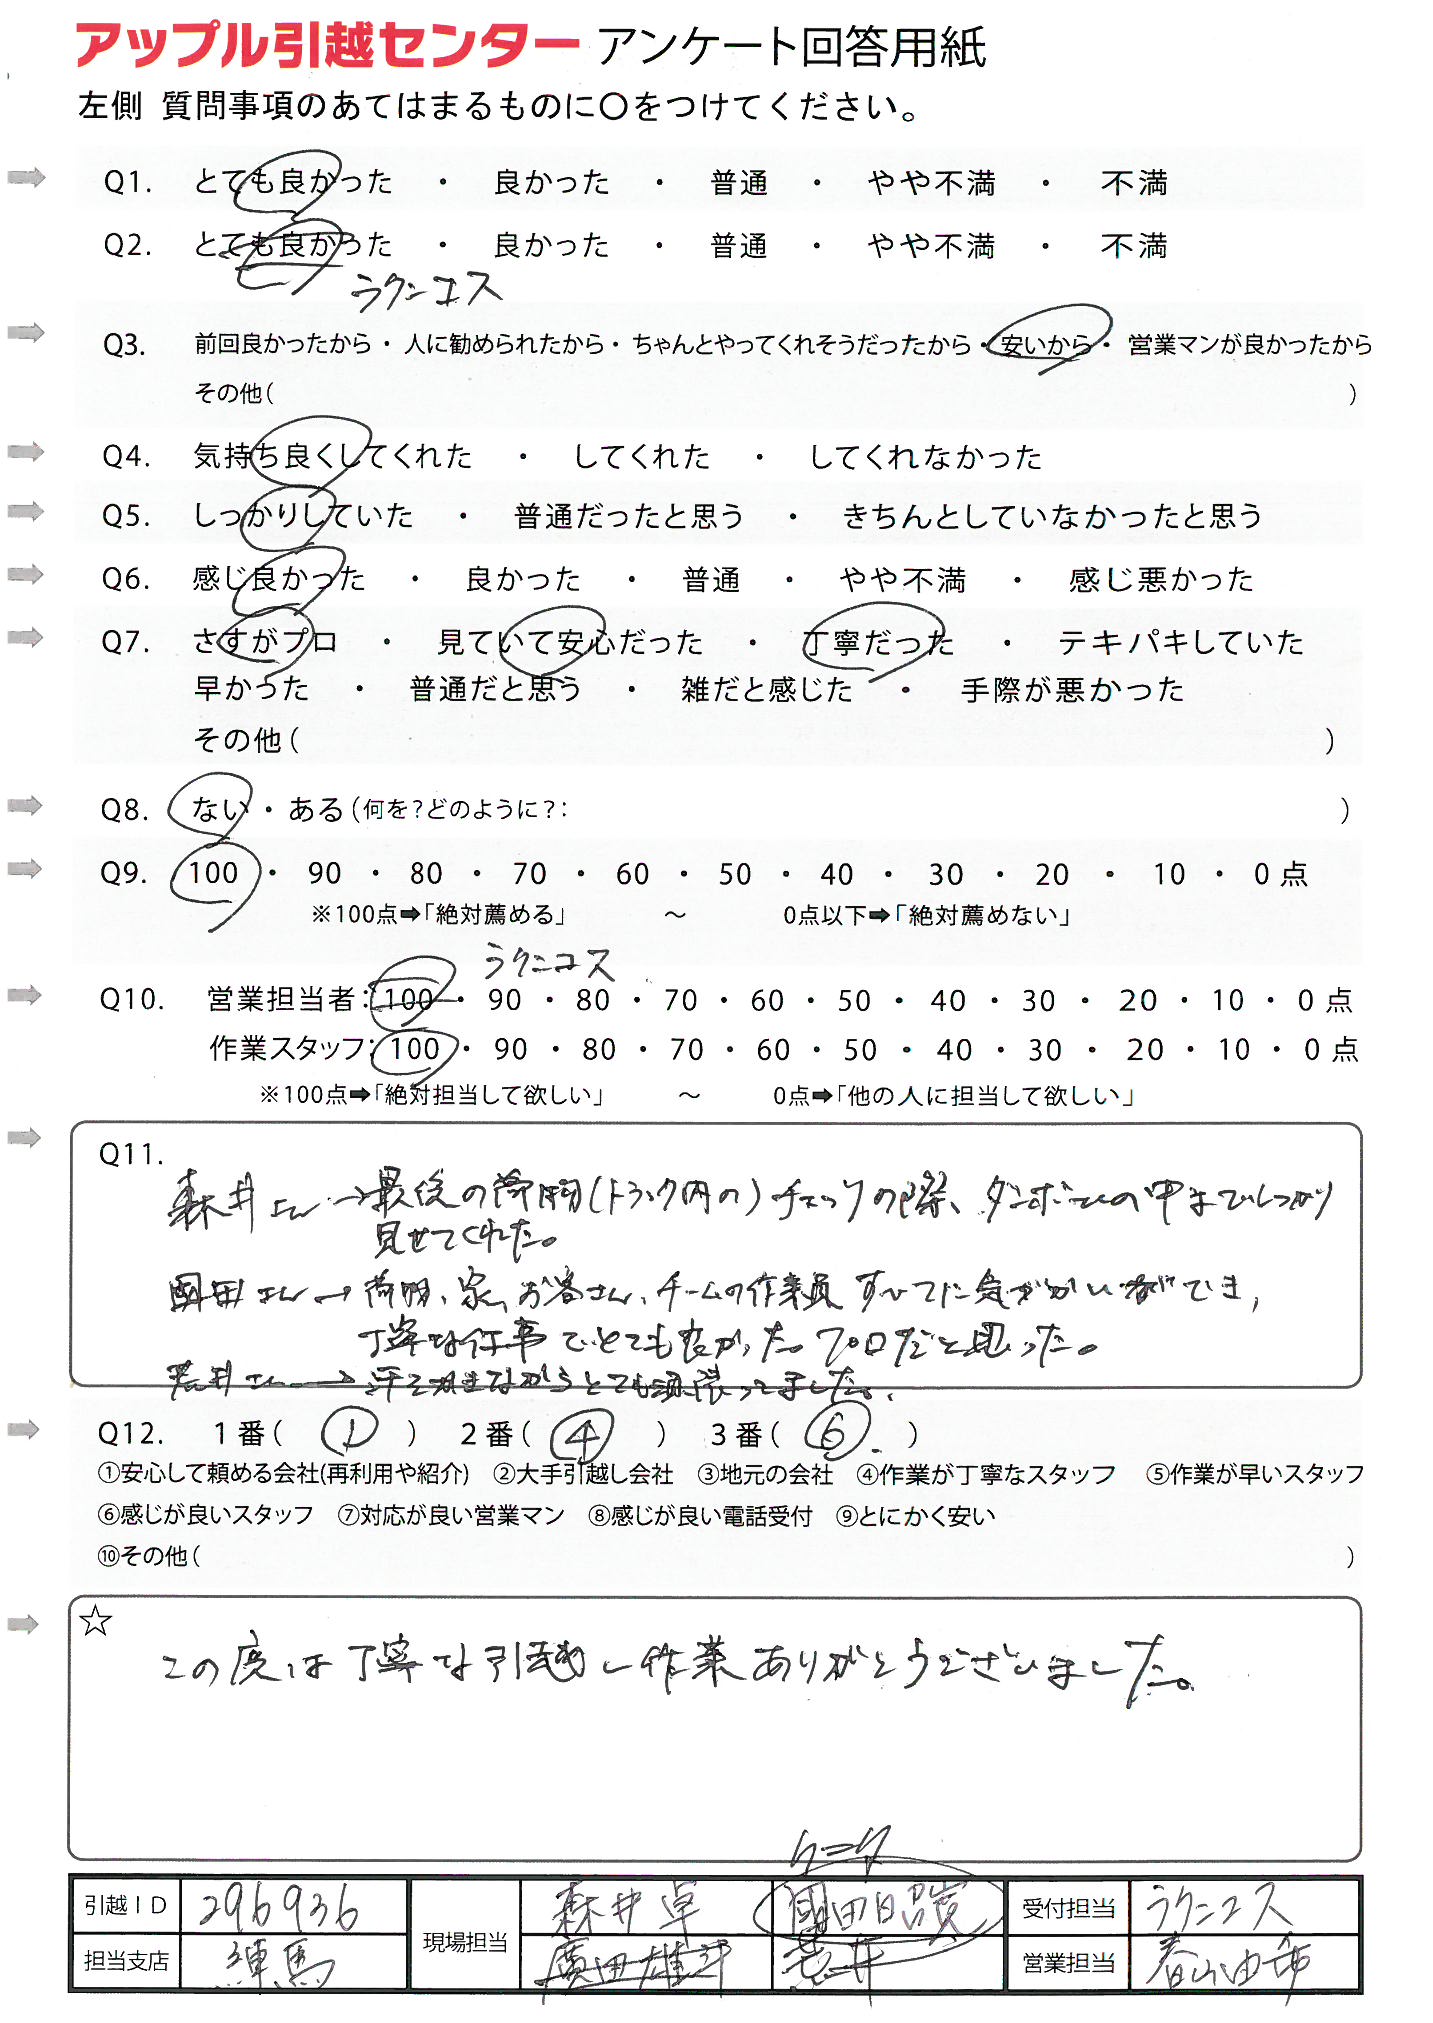 アップル引越センター アンケート回答用紙
左側 質問事項のあてはまるものに○をつけてください。
Q1. とても良かった ・ 良かった ・ 普通 ・ やや不満 ・ 不満
Q2. とても良かった ・ 良かった ・ 普通 ・ やや不満 ・ 不満
ラクニコス
Q3. 前回良かったから・ 人に勧められたから・ ちゃんとやってくれそうだったから・ 安いから・ 営業マンが良かったから
その他( )
Q4. 気持ち良くしてくれた ・ してくれた ・ してくれなかった
Q5. しっかりしていた ・ 普通だったと思う ・ きちんとしていなかったと思う
Q6. 感じ良かった ・ 良かった ・ 普通 ・ やや不満 ・ 感じ悪かった
Q7. さすがプロ ・ 見ていて安心だった ・ 丁寧だった ・ テキパキしていた
早かった ・ 普通だと思う ・ 雑だと感じた ・ 手際が悪かった
その他( )
Q8. ない ・ ある(何を?どのように?: )
Q9. 100 ・ 90 ・ 80 ・ 70 ・ 60 ・ 50 ・ 40 ・ 30 ・ 20 ・ 10 ・ 0 点
※100点➡「絶対薦める」 〜 0点以下➡「絶対薦めない」
ラクニコス
Q10. 営業担当者: 100 ・ 90 ・ 80 ・ 70 ・ 60 ・ 50 ・ 40 ・ 30 ・ 20 ・ 10 ・ 0 点
作業スタッフ: 100 ・ 90 ・ 80 ・ 70 ・ 60 ・ 50 ・ 40 ・ 30 ・ 20 ・ 10 ・ 0 点
※100点➡「絶対担当して欲しい」 〜 0点➡「他の人に担当して欲しい」
Q11.
森井さん→最後の荷物(トラック内の)チェックの際、ダンボールの中までしっかり
見せてくれた。
國田さん→荷物、家、お客さん、チームの作業員 すべてに気づかいができ、
丁寧な仕事でとても良かった。プロだと思った。
荒井さん→汗を流しながらとても頑張ってました。
Q12. 1番( ① ) 2番( ④ ) 3番( ⑥ )
①安心して頼める会社(再利用や紹介) ②大手引越し会社 ③地元の会社 ④作業が丁寧なスタッフ ⑤作業が早いスタッフ
⑥感じが良いスタッフ ⑦対応が良い営業マン ⑧感じが良い電話受付 ⑨とにかく安い
⑩その他( )
☆
この度は丁寧な引越し作業ありがとうございました。
引越ID 296936 現場担当 森井 卓 國田 受付担当 ラクニコス
担当支店 練馬 廣田雄斗 荒井 営業担当 春山由歩